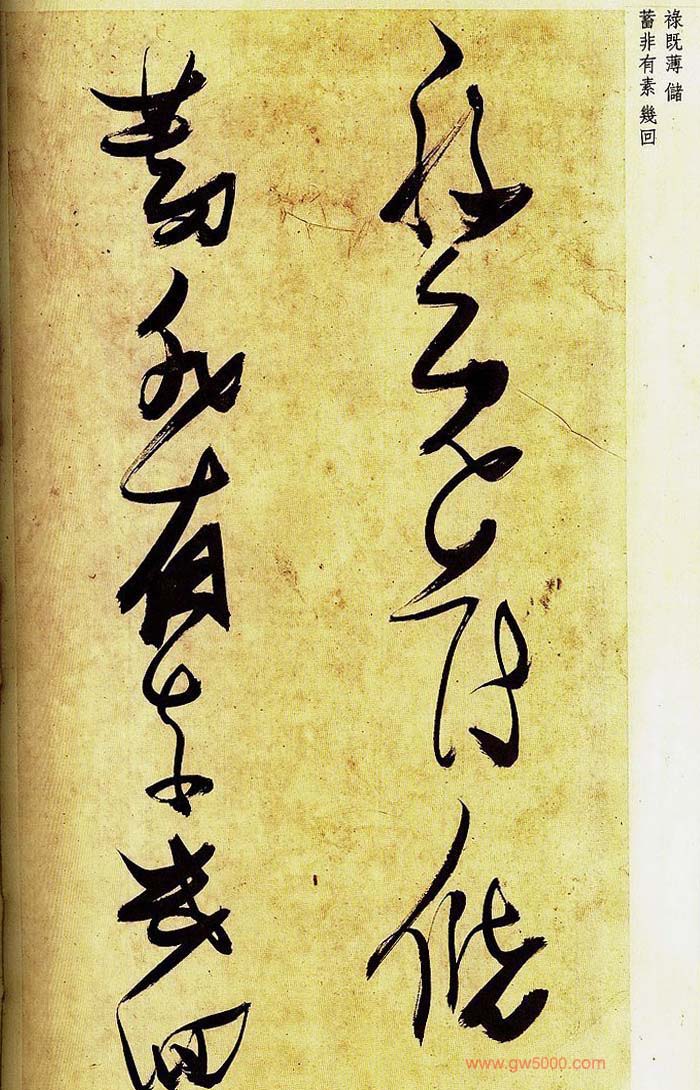 祿既薄 儲
蓄非有素 幾回
祿既薄儲
蓄非有素幾回
www.gw5000.com